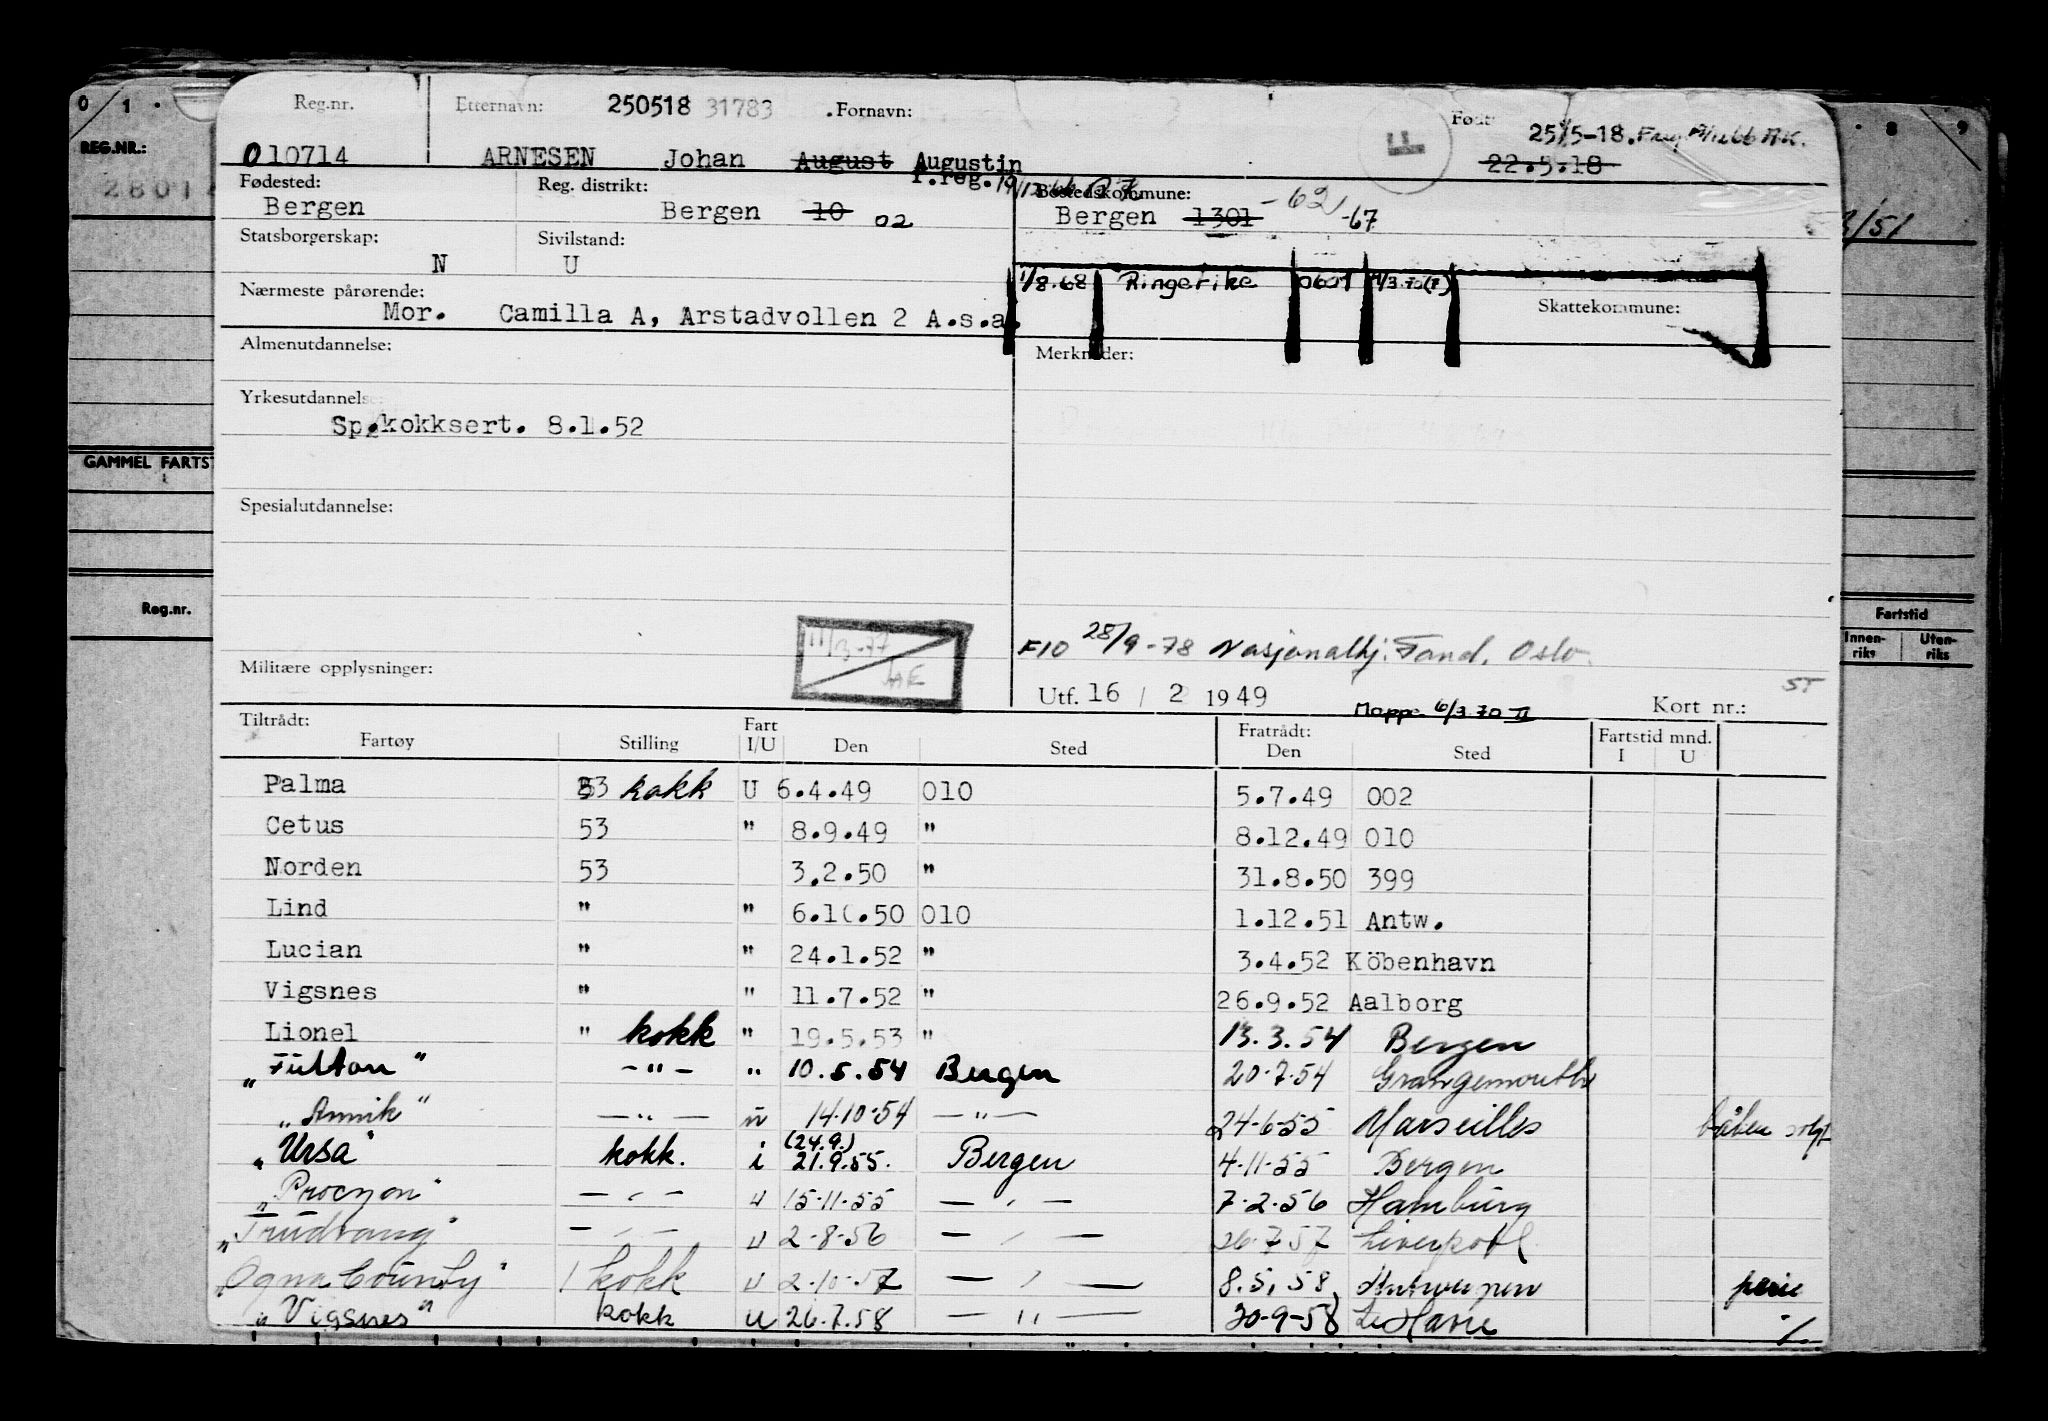 0 1 .
. 8 9
REG.NR.:
GAMMEL FARTST
Reg.nr.
3/51
Fartstid
Innen-riks Uten-riks
Reg.nr. Etternavn: 250518 31783 .Fornavn: Født:
25/5-18.
010714 ARNESEN Johan August Augustin F 22.5.18
f.reg.
Fødested: Reg. distrikt: Bostedskommune:
Bergen Bergen 10 02 Bergen 1301 -62 -67
Statsborgerskap: Sivilstand:
N U
1/8.68 Ringerike 0601
Nærmeste pårørende: Skattekommune:
Mor. Camilla A, Arstadvollen 2 A.s.a.
Almenutdannelse: Merknader:
Yrkesutdannelse:
Sp.kokksert. 8.1.52
Spesialutdannelse:
11/3-77
F10 28/9-78 Nasjonalhj. Fond, Oslo.
Militære opplysninger:
Utf. 16 / 2 1949 Mappe 6/3 70 II Kort nr.:
Tiltrådt: Fart Fratrådt: Fartstid mnd.
Fartøy Stilling I/U Den Sted Den Sted I U
Palma 53 kokk U 6.4.49 010 5.7.49 002
Cetus 53 " 8.9.49 " 8.12.49 010
Norden 53 3.2.50 " 31.8.50 399
Lind " " 6.10.50 010 1.12.51 Antw.
Lucian " " 24.1.52 " 3.4.52 Köbenhavn
Vigsnes " " 11.7.52 " 26.9.52 Aalborg
Lionel " kokk " 19.5.53 " 13.3.54 Bergen
"Fulton" -"- " 10.5.54 Bergen 20-7-54 Grangemouth
"Annik" -"- u 14-10-54 -"- 24-6-55 Marseilles båten solgt
"Ursa" kokk. i (24.9.) 21.9.55. Bergen 4-11-55 Bergen
"Procyon" -"- u 15-11-55 -"- 7-2-56 Hamburg
"Trudvang" -"- u 2-8-56 -"- 26.7.57 Liverpool
"Ogna County" 1 kokk u 2-10-57 -"- 8.5.58 Antwerpen ferie
"Vigsnes" kokk u 26.7.58 -"- 30-9-58 Le Havre ./.